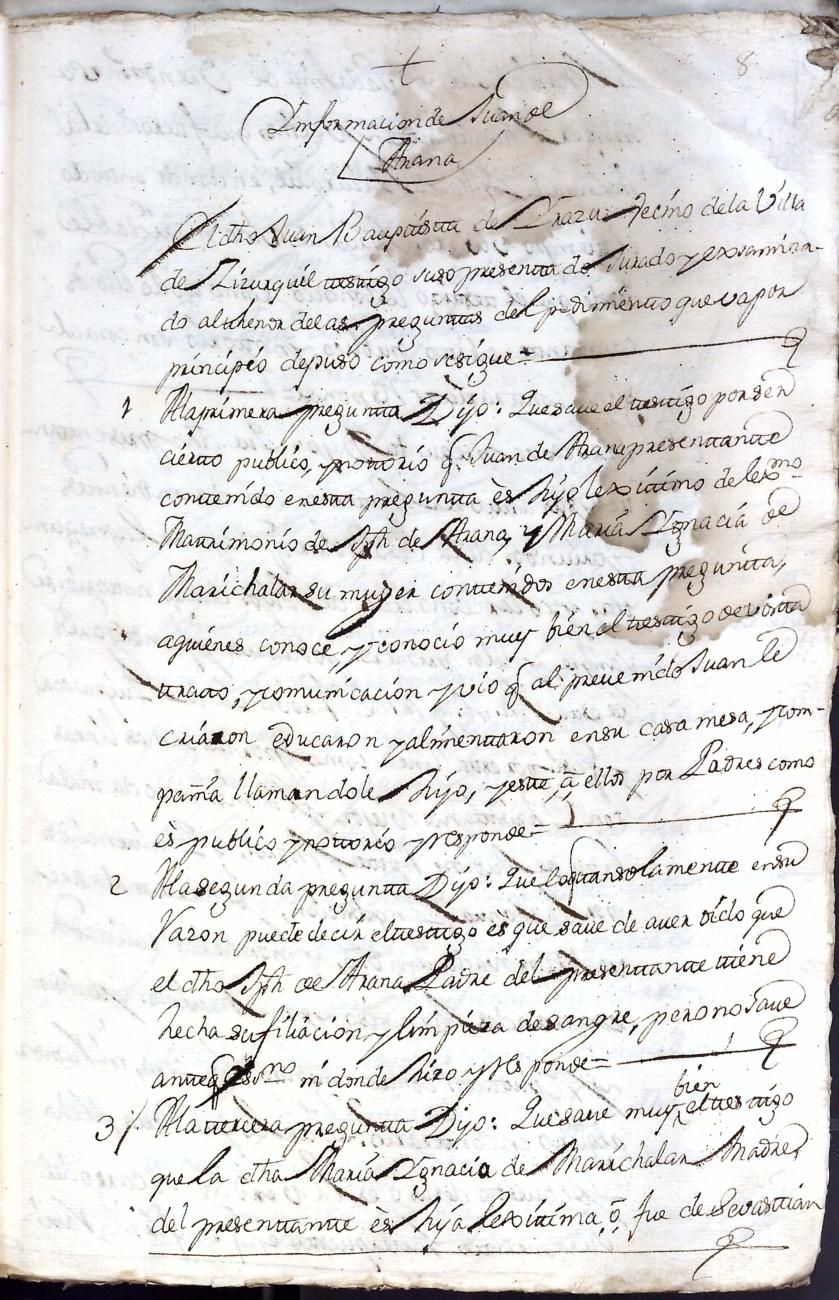 8
Informacion de Juan de
Arana
El dho Juan Bauptista de Yrazu Vecino de la Villa
de Zizurquil testigo suso presentado Jurado y examina-
do al thenor delas preguntas del pedimento que va por
principio depuso como se sigue =
1 Ala primera pregunta Dijo: Que save el testigo por ser
cierto publico, y nottorio q Juan de Arana presentante
contenido en esta pregunta ès hijo lexitimo de lexmo
Matrimonio de Jph de Arana, y Maria Ygnacia de
Marichalar su muger contenidos en esta pregunta,
aquienes conoce, y conocio muy bien el testigo de vista
tratto, y comunicacion y vio q al prevenido Juan le
criaron educaron y alimentaron en su casa mesa, y com-
pañia llamandole hijo, y este a ellos por Padres como
ès publico y nottorio y responde =
2 Ala segunda pregunta Dijo: Que lo q tan solamente en su
razon puede decir el testigo ès que save de aver oido que
el dho Jph de Arana Padre del presentante tiene
hecha su filiacion y limpieza de sangre, pero no save
ante q esno ni donde hizo y responde =
3 Ala tercera pregunta Dijo: Que save muy bien el testigo
que la dha Maria Ygnacia de Marichalar Madre
del presentante ès hija lexitima, ò, fue de Sevastian